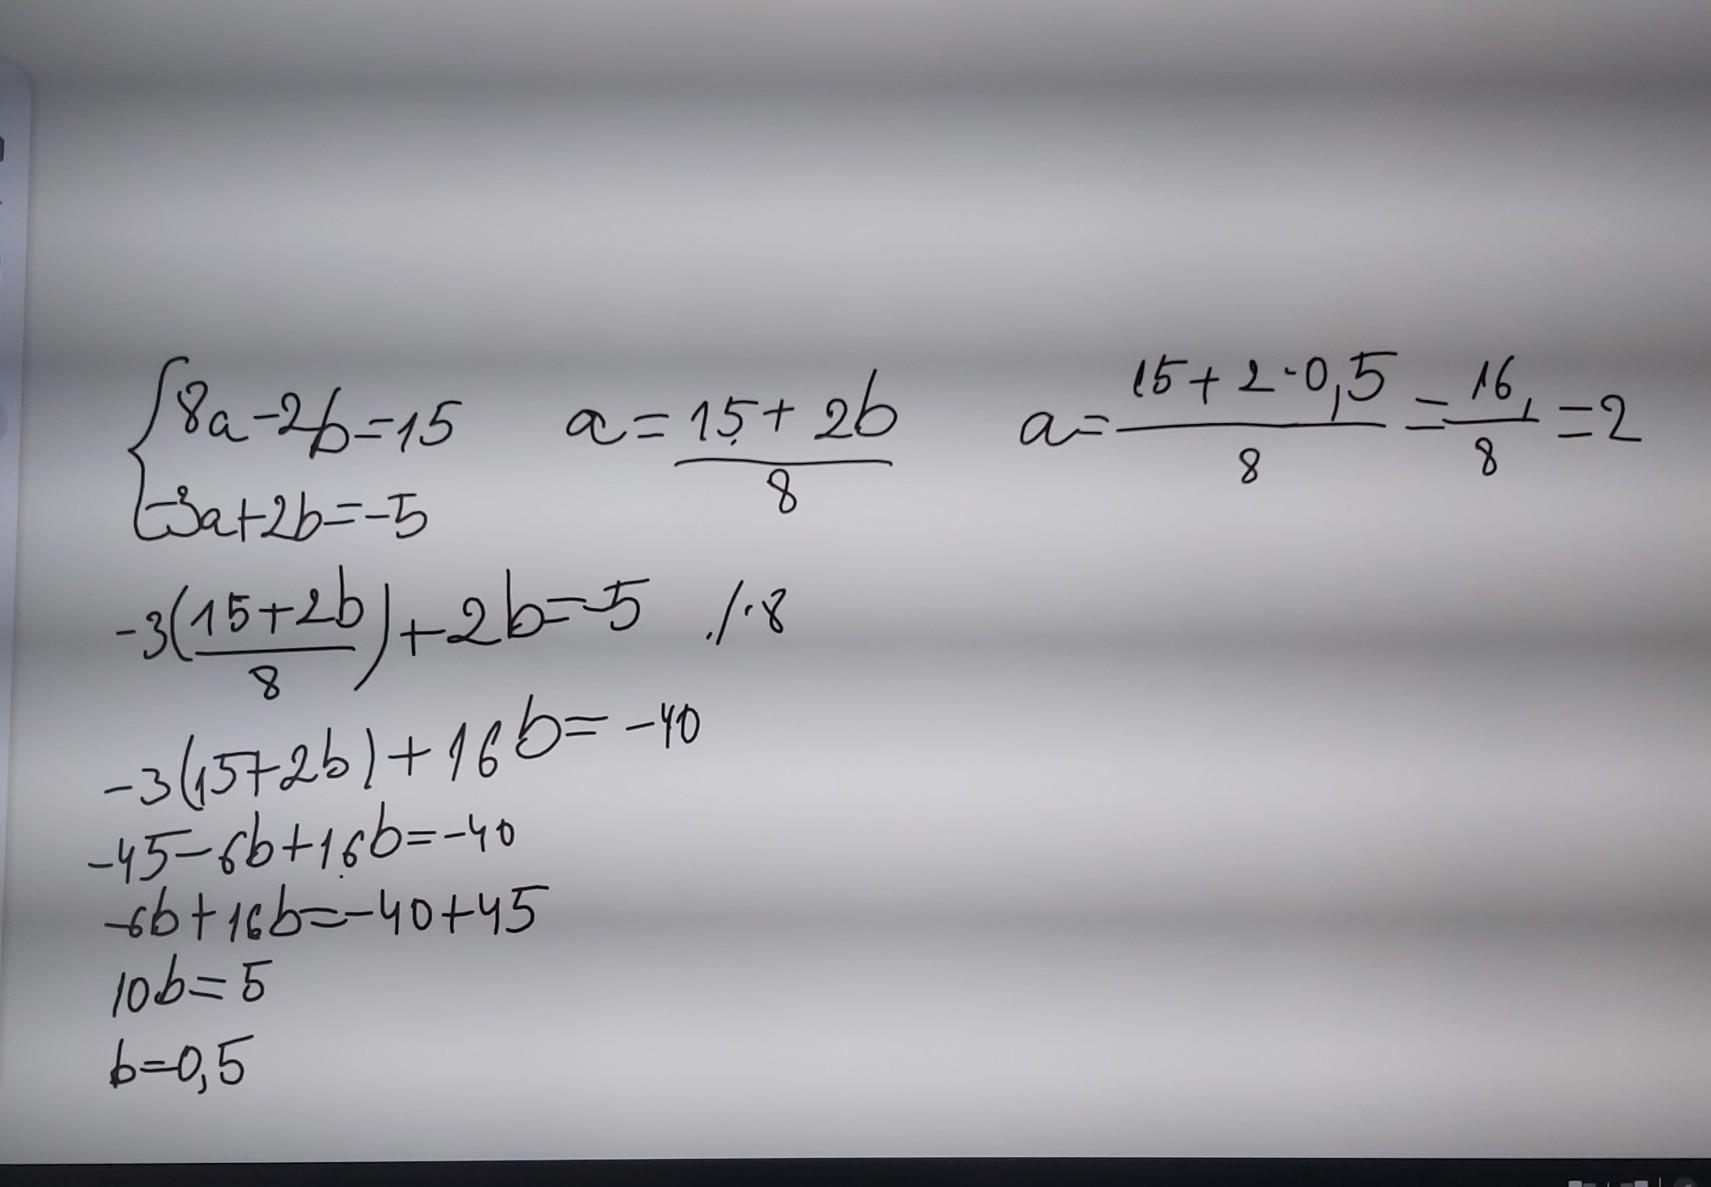 8a-2b=15
-3a+2b=-5
a=15+2b/8
a=15+2·0,5/8=16/8=2
-3(15+2b/8)+2b=-5 /·8
-3(15+2b)+16b=-40
-45-6b+16b=-40
-6b+16b=-40+45
10b=5
b=0,5